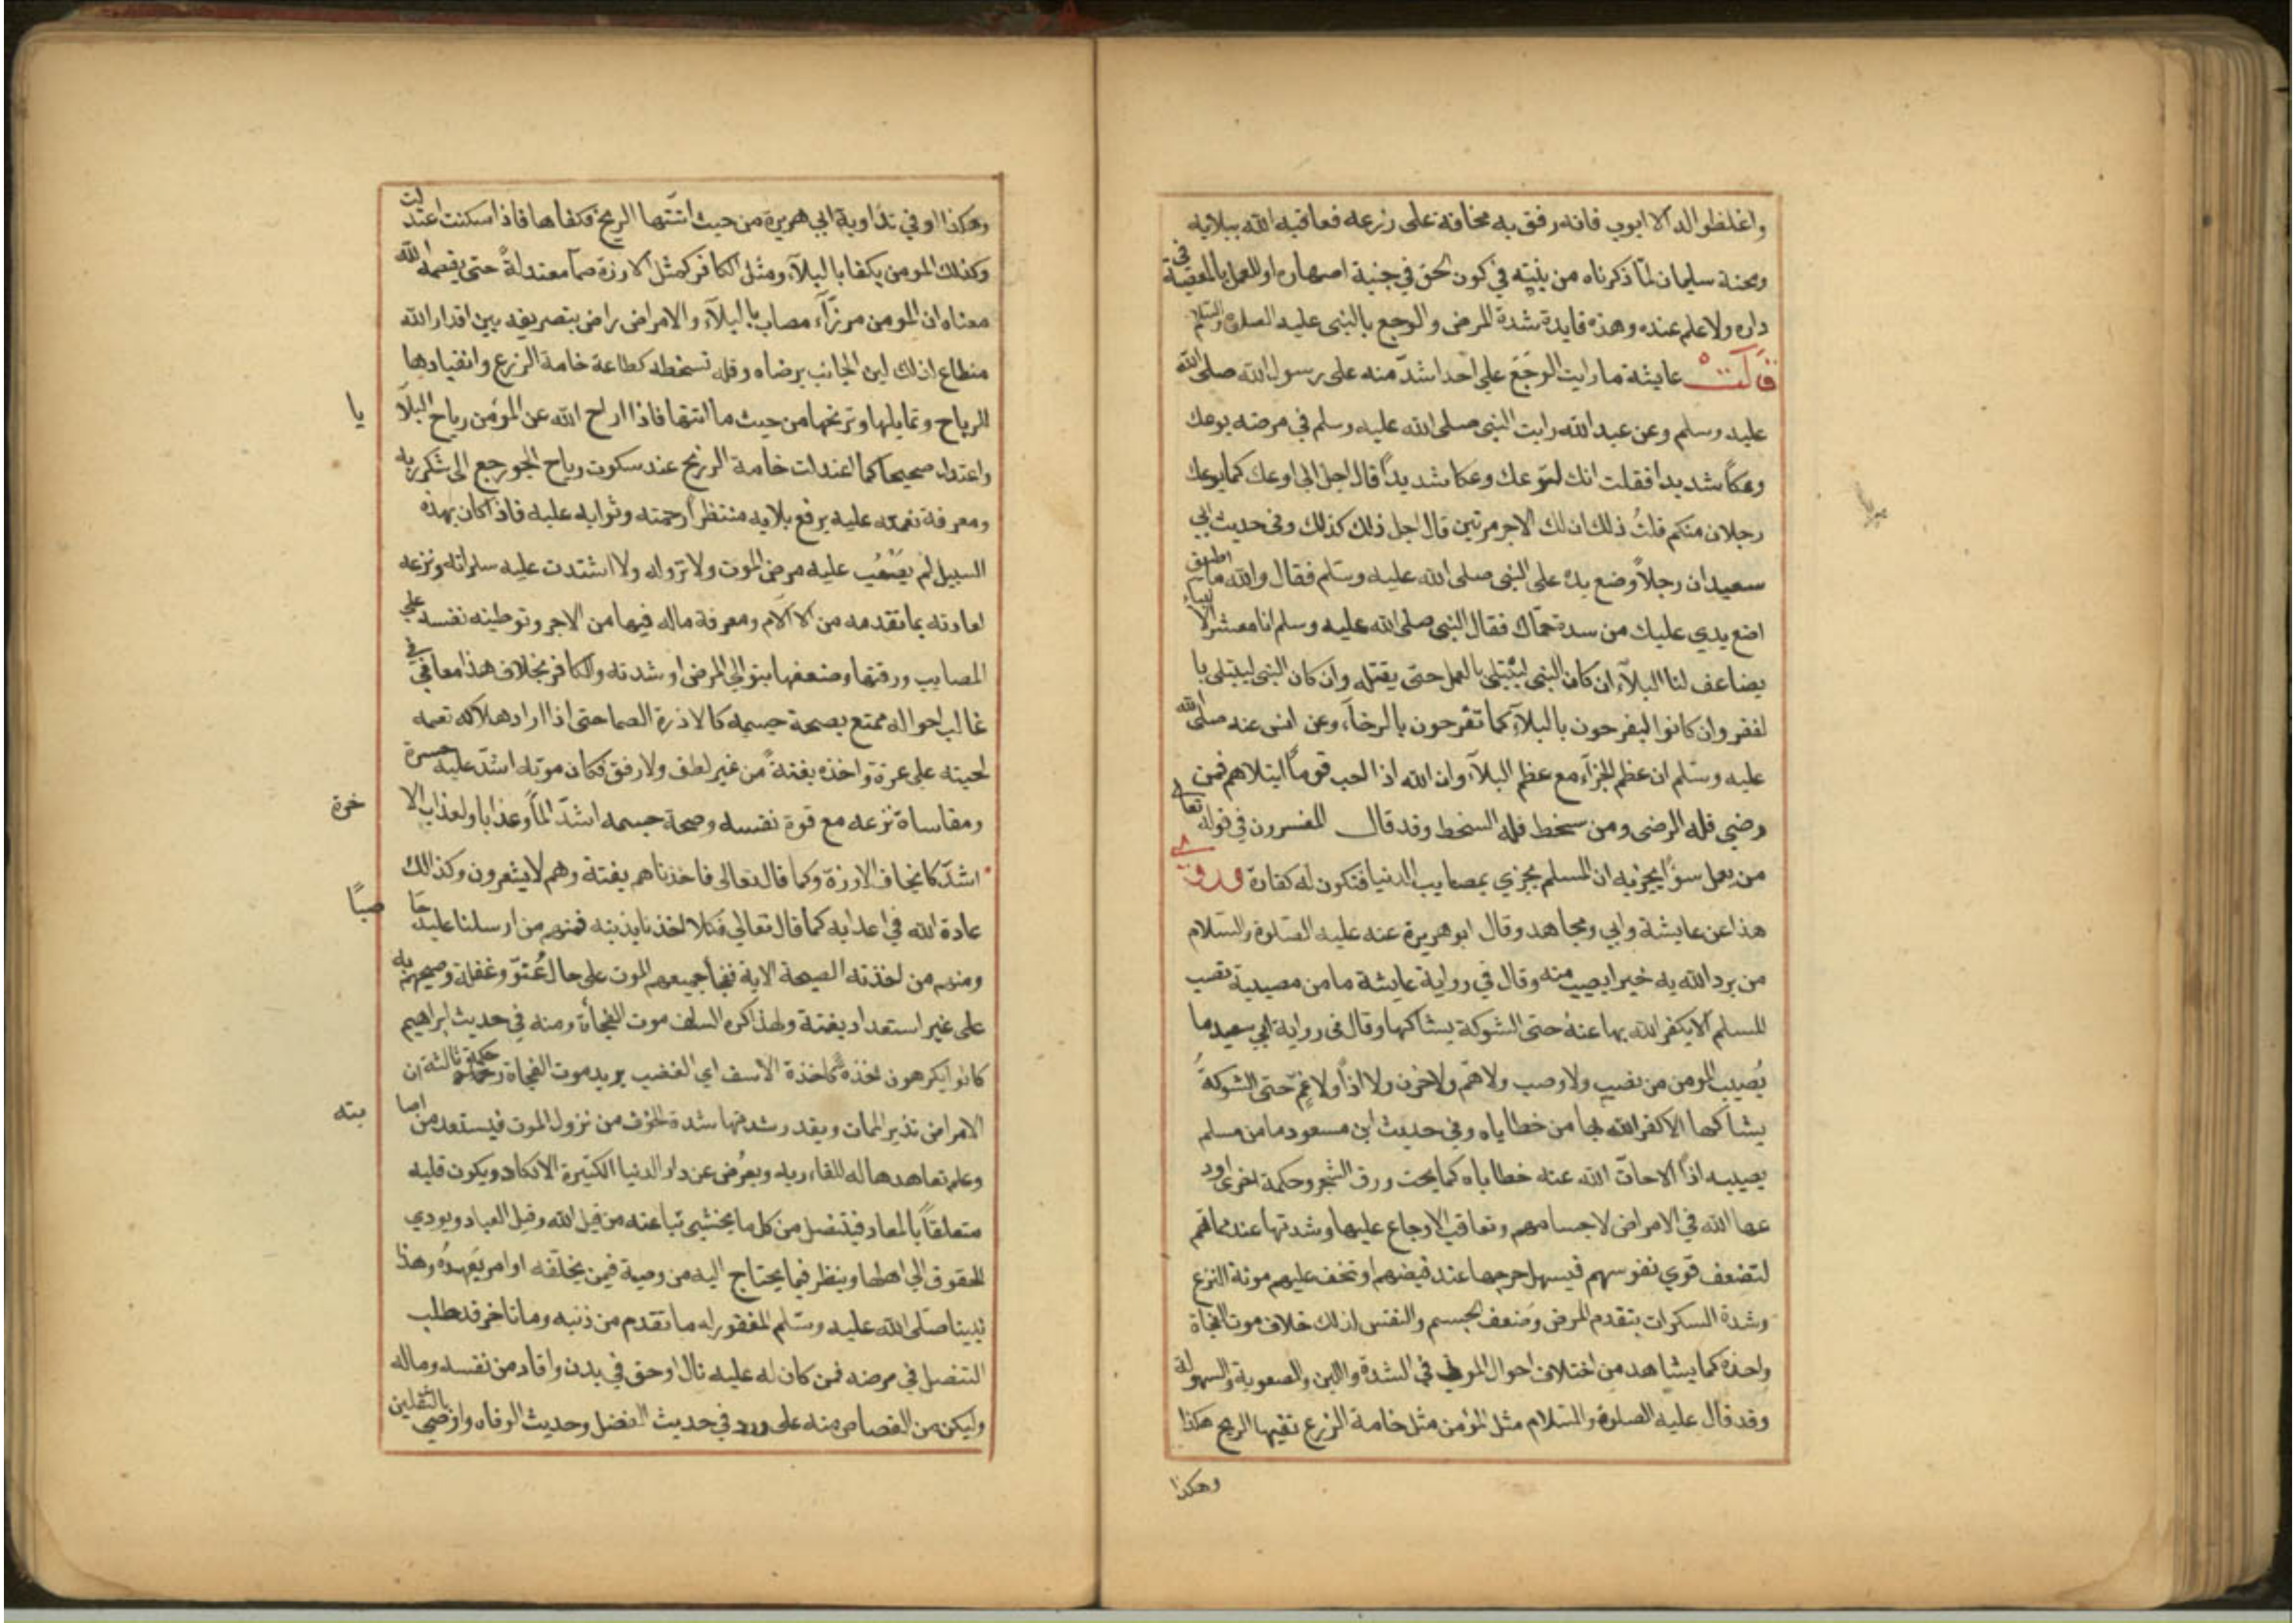 واغلظوا له الا ايوب فانه رفق به مخافة على زرعه فعاقبه الله ببلايه
ومحنة سليمان لما ذكرناه من نيته في كون الحق في جنبة اصهاره او للعمل بالمعصية في
داره ولا علم عنده وهذه فايدة شدة المرض والوجع بالنبي عليه الصلوة والسلام
قالت عايشة ما رايت الوجع على احد اشد منه على رسول الله صلى الله
عليه وسلم وعن عبد الله رايت النبي صلى الله عليه وسلم في مرضه يوعك
وعكا شديدا فقلت انك لتوعك وعكا شديدا قال اجل اني اوعك كما يوعك
رجلان منكم قلت ذلك ان لك الاجر مرتين قال اجل ذلك كذلك وفي حديث ابي
سعيد ان رجلا وضع يده على النبي صلى الله عليه وسلم فقال والله ما اطيق
اضع يدي عليك من شدة حماك فقال النبي صلى الله عليه وسلم انا معشر الا نبياء
يضاعف لنا البلاء ان كان النبي ليبتلى بالقمل حتى يقتله وان كان النبي ليبتلى با
لفقر وان كانوا ليفرحون بالبلاء كما تفرحون بالرخاء وعن انس عنه صلى الله
عليه وسلم ان عظم الجزاء مع عظم البلاء وان الله اذا احب قوما ابتلاهم فمن
رضي فله الرضى ومن سخط فله السخط وقد قال المفسرون في قوله تعالى
من يعمل سوءا يجز به ان المسلم يجزي بمصايب الدنيا فتكون له كفارة وروي
هذا عن عايشة وابي ومجاهد وقال ابو هريرة عنه عليه الصلوة والسلام
من يرد الله به خيرا يصيب منه وقال في رواية عايشة ما من مصيبة تصيب
المسلم الا يكفر الله بها عنه حتى الشوكة يشاكها وقال في رواية ابي سعيد ما
يصيب المومن من نصب ولا وصب ولا هم ولا حزن ولا اذا ولا غم حتى الشوكة
يشاكها الا كفر الله بها من خطاياه وفي حديث ابن مسعود ما من مسلم
يصيبه اذا الا حات الله عنه خطاياه كما يحت ورق الشجر وحكمة اخرى اود
عها الله في الامراض لاجسامهم وتعاقب الاوجاع عليها وشدتها عند مماتهم
لتضعف قوي نفوسهم فيسهل خرجها عند قبضهم وتخف عليهم مونة النزع
وشدة السكرات بتقدم المرض وضعف الجسم والنفس لذلك خلاف موت الفجاة
واخذه كما يشاهد من اختلاف احوال الموتى في الشدة واللين والصعوبة والسهولة
وقد قال عليه الصلوة والسلام مثل المؤمن مثل خامة الزرع تفيها الريح هكذا
وهكذا
وهكذا او في رواية ابي هريرة من حيث اتتها الريح تكفاها فاذا سكنت اعتدلت
وكذلك المومن يكفا بالبلاء ومثل الكافر كمثل الارزة صما معتدلة حتى يقصمه الله
معناه ان المومن مرزاء مصاب بالبلاء والامراض راض بتصريفه بين اقدار الله
منطاع لذلك لين الجانب برضاه وقلة تسخطه كطاعة خامة الزرع وانقيادها
للرياح وتمايلها وترنحها من حيث ما اتتها فاذا ازاح الله عن المؤمن رياح البلايا
واعتدل صحيحا كما اعتدلت خامة الزرع عند سكون رياح الجو رجع الى شكر ربه
ومعرفة نعمته عليه برفع بلايه منتظرا رحمته وثوابه عليه فاذا كان بهذه
السبيل لم يصعب عليه مرض الموت ولا نزوله ولا اشتدت عليه سكراته ونزعه
لعادته بما تقدمه من الالام ومعرفة ماله فيها من الاجر وتوطينه نفسه على
المصايب ورقتها وضعفها بتوالي المرض او شدته والكافر بخلاف هذا معافي في
غالب احواله ممتع بصحة جسمه كالارزة الصما حتى اذا اراد هلاكه قصمه
لحينه على غرة واخذه بغتة من غير لطف ولا رفق فكان موته اشد عليه حسرة
ومقاساة نزعه مع قوة نفسه وصحة جسمه اشد الما وعذابا ولعذاب الا خرة
اشد كانجعاف الارزة وكما قال تعالى فاخذناهم بغتة وهم لا يشعرون وكذالك
عادة الله في اعدايه كما قال تعالى فكلا اخذنا بذنبه فمنهم من ارسلنا عليه حا صبا
ومنهم من اخذته الصيحة الاية ففجا جميعهم الموت على حال عتو وغفلة وصبحهم به
على غير استعداد بغتة ولهذا كره السلف موت الفجأة ومنه في حديث ابراهيم
كانوا يكرهون اخذة كاخذة الاسف اي الغضب يريد موت الفجاة وحكمة ثالثة ان
الامراض نذير الممات وبقدر شدتها شدة الخوف من نزول الموت فيستعد من اصا بته
وعلم تعاهدها له للقاء ربه ويعرض عن دار الدنيا الكثيرة الانكاد ويكون قلبه
متعلقا بالمعاد فيتنصل من كل ما يخشى تباعته من قبل الله وقبل العباد ويودي
الحقوق الى اهلها وينظر فيما يحتاج اليه من وصية فيمن يخلفه او امر يعهده وهذا
نبينا صلى الله عليه وسلم المغفور له ما تقدم من ذنبه وما تاخر قد طلب
التنصل في مرضه فمن كان له عليه مال او حق في بدن واقاد من نفسه وماله
وليكن من القصاص منه على ورد في حديث الفضل وحديث الوفاه واوصى بالثقلين